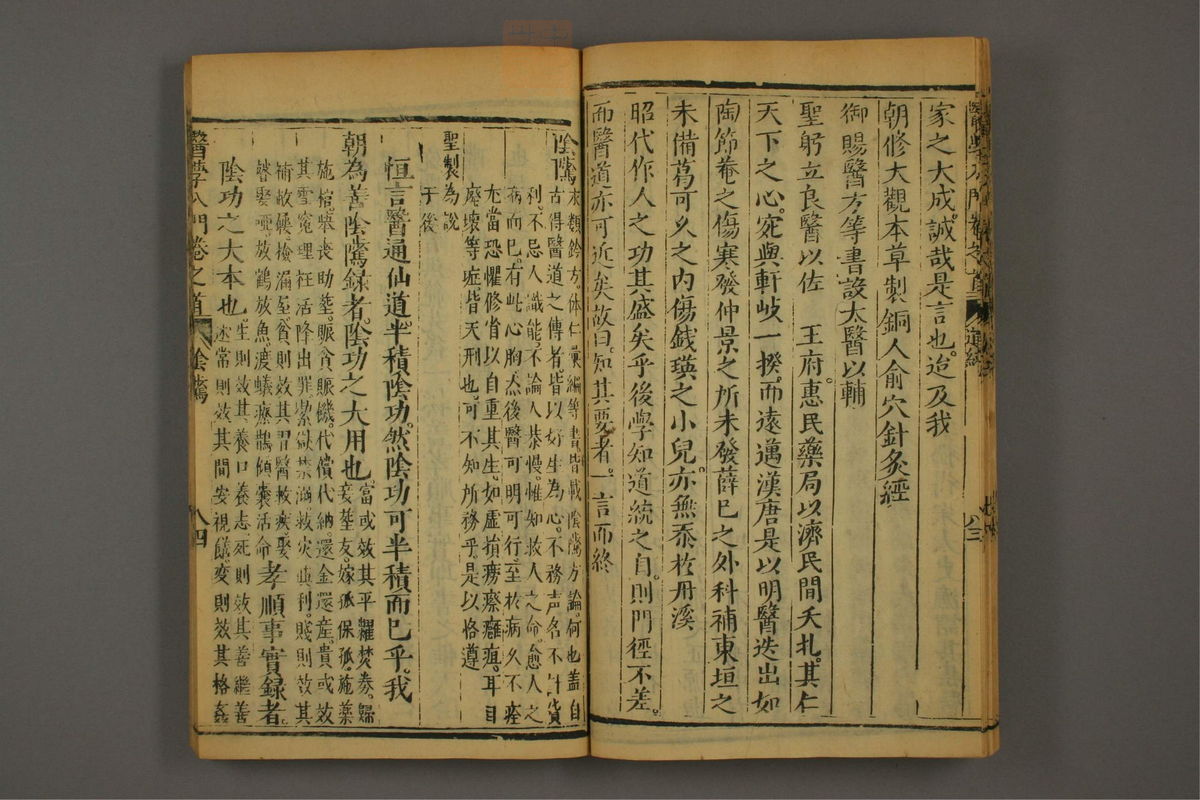 家之大成誠哉是言也迨及我
朝修大觀本草製銅人俞穴針灸經
御賜醫方等書設太醫以輔
聖躬立良醫以佐　王府惠民藥局以濟民間夭扎其仁
天下之心宛與軒岐一揆而遠邁漢唐是以明醫迭出如
陶節菴之傷寒發仲景之所未發薛已之外科補東垣之
未備葛可久之內傷錢瑛之小兒亦無忝於丹溪
昭代作人之功其盛矣乎後學知道統之自則門徑不差
而醫道亦可近矣故曰知其要者一言而終
陰隲
求類鈐方体仁彙編等書皆載陰隲方論何也盖自
古得醫道之傳者皆以好生為心不務声名不計貨
利不忌人識能不論人恭慢惟知救人之命愈人之
病而已有此心胸然後醫可明可行至於病久不痊
尤當恐懼修省以自重其生如虛損癆瘵癰疽耳目
廢壞等症皆天刑也可不知所務乎是以恪遵
聖製為說
于後
恒言醫通仙道半積陰功然陰功可半積而已乎我
朝為善陰隲錄者陰功之大用也
當或效其平糶焚券歸
妾塟友嫁孤保孤施藥
施棺舉丧助塟賑貧賑饑代償代納還金還産貴或效
其雪寃理枉活降出罪
利賤則效其
孝順事實錄者
陰功之大本也
生則效其養口養志死則效其善繼善
述常則效其問安視饍变則效其格姦
醫學入門卷之首
陰隲
八四
八三